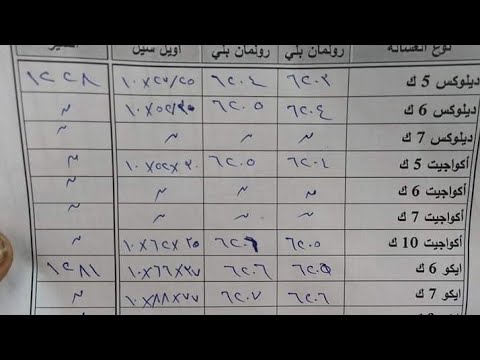 نوع الغسالة رولمان بلي رولمان بلي اويل سيل السير
ديلوكس 5 ك ٦٢٠٣ ٦٢٠٤ ١٢٢٨
ديلوكس 6 ك ٦٢٠٤ ٦٢٠٥ ١٠×٥٢/٣٠ "
ديلوكس 7 ك " " " "
أكواجيت 5 ك ٦٢٠٤ ٦٢٠٥ ١٠×٥٢×٣٠ "
أكواجيت 6 ك " " " "
أكواجيت 7 ك " " " "
أكواجيت 10 ك ٦٢٠٥ ٦٢٠٦ ١٠×٦٢×٣٥ "
ايكو 6 ك ٦٢٠٥ ٦٢٠٦ ١٢٨١
ايكو 7 ك ٦٢٠٦ ٦٢٠٧ "